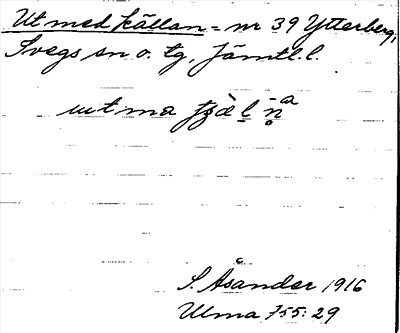 Ut med källan = nr 39 Ytterberg,
Svegs sn o. tg, Jämtl. l.
ut ma
S. Åsander 1916
Ulma 755:29